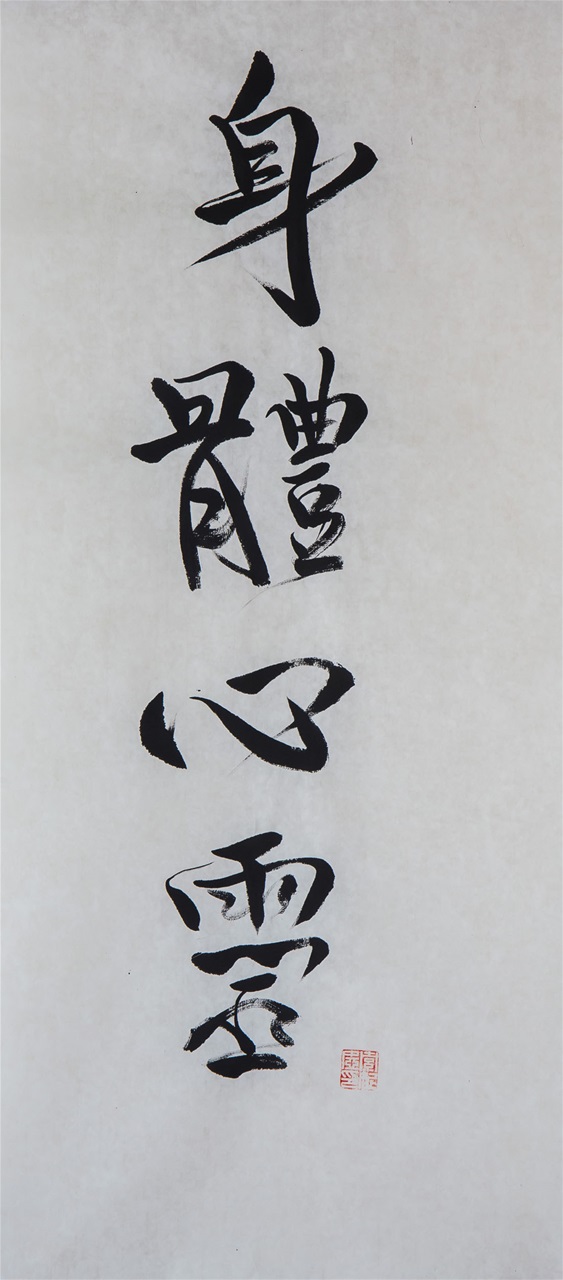 身體心靈